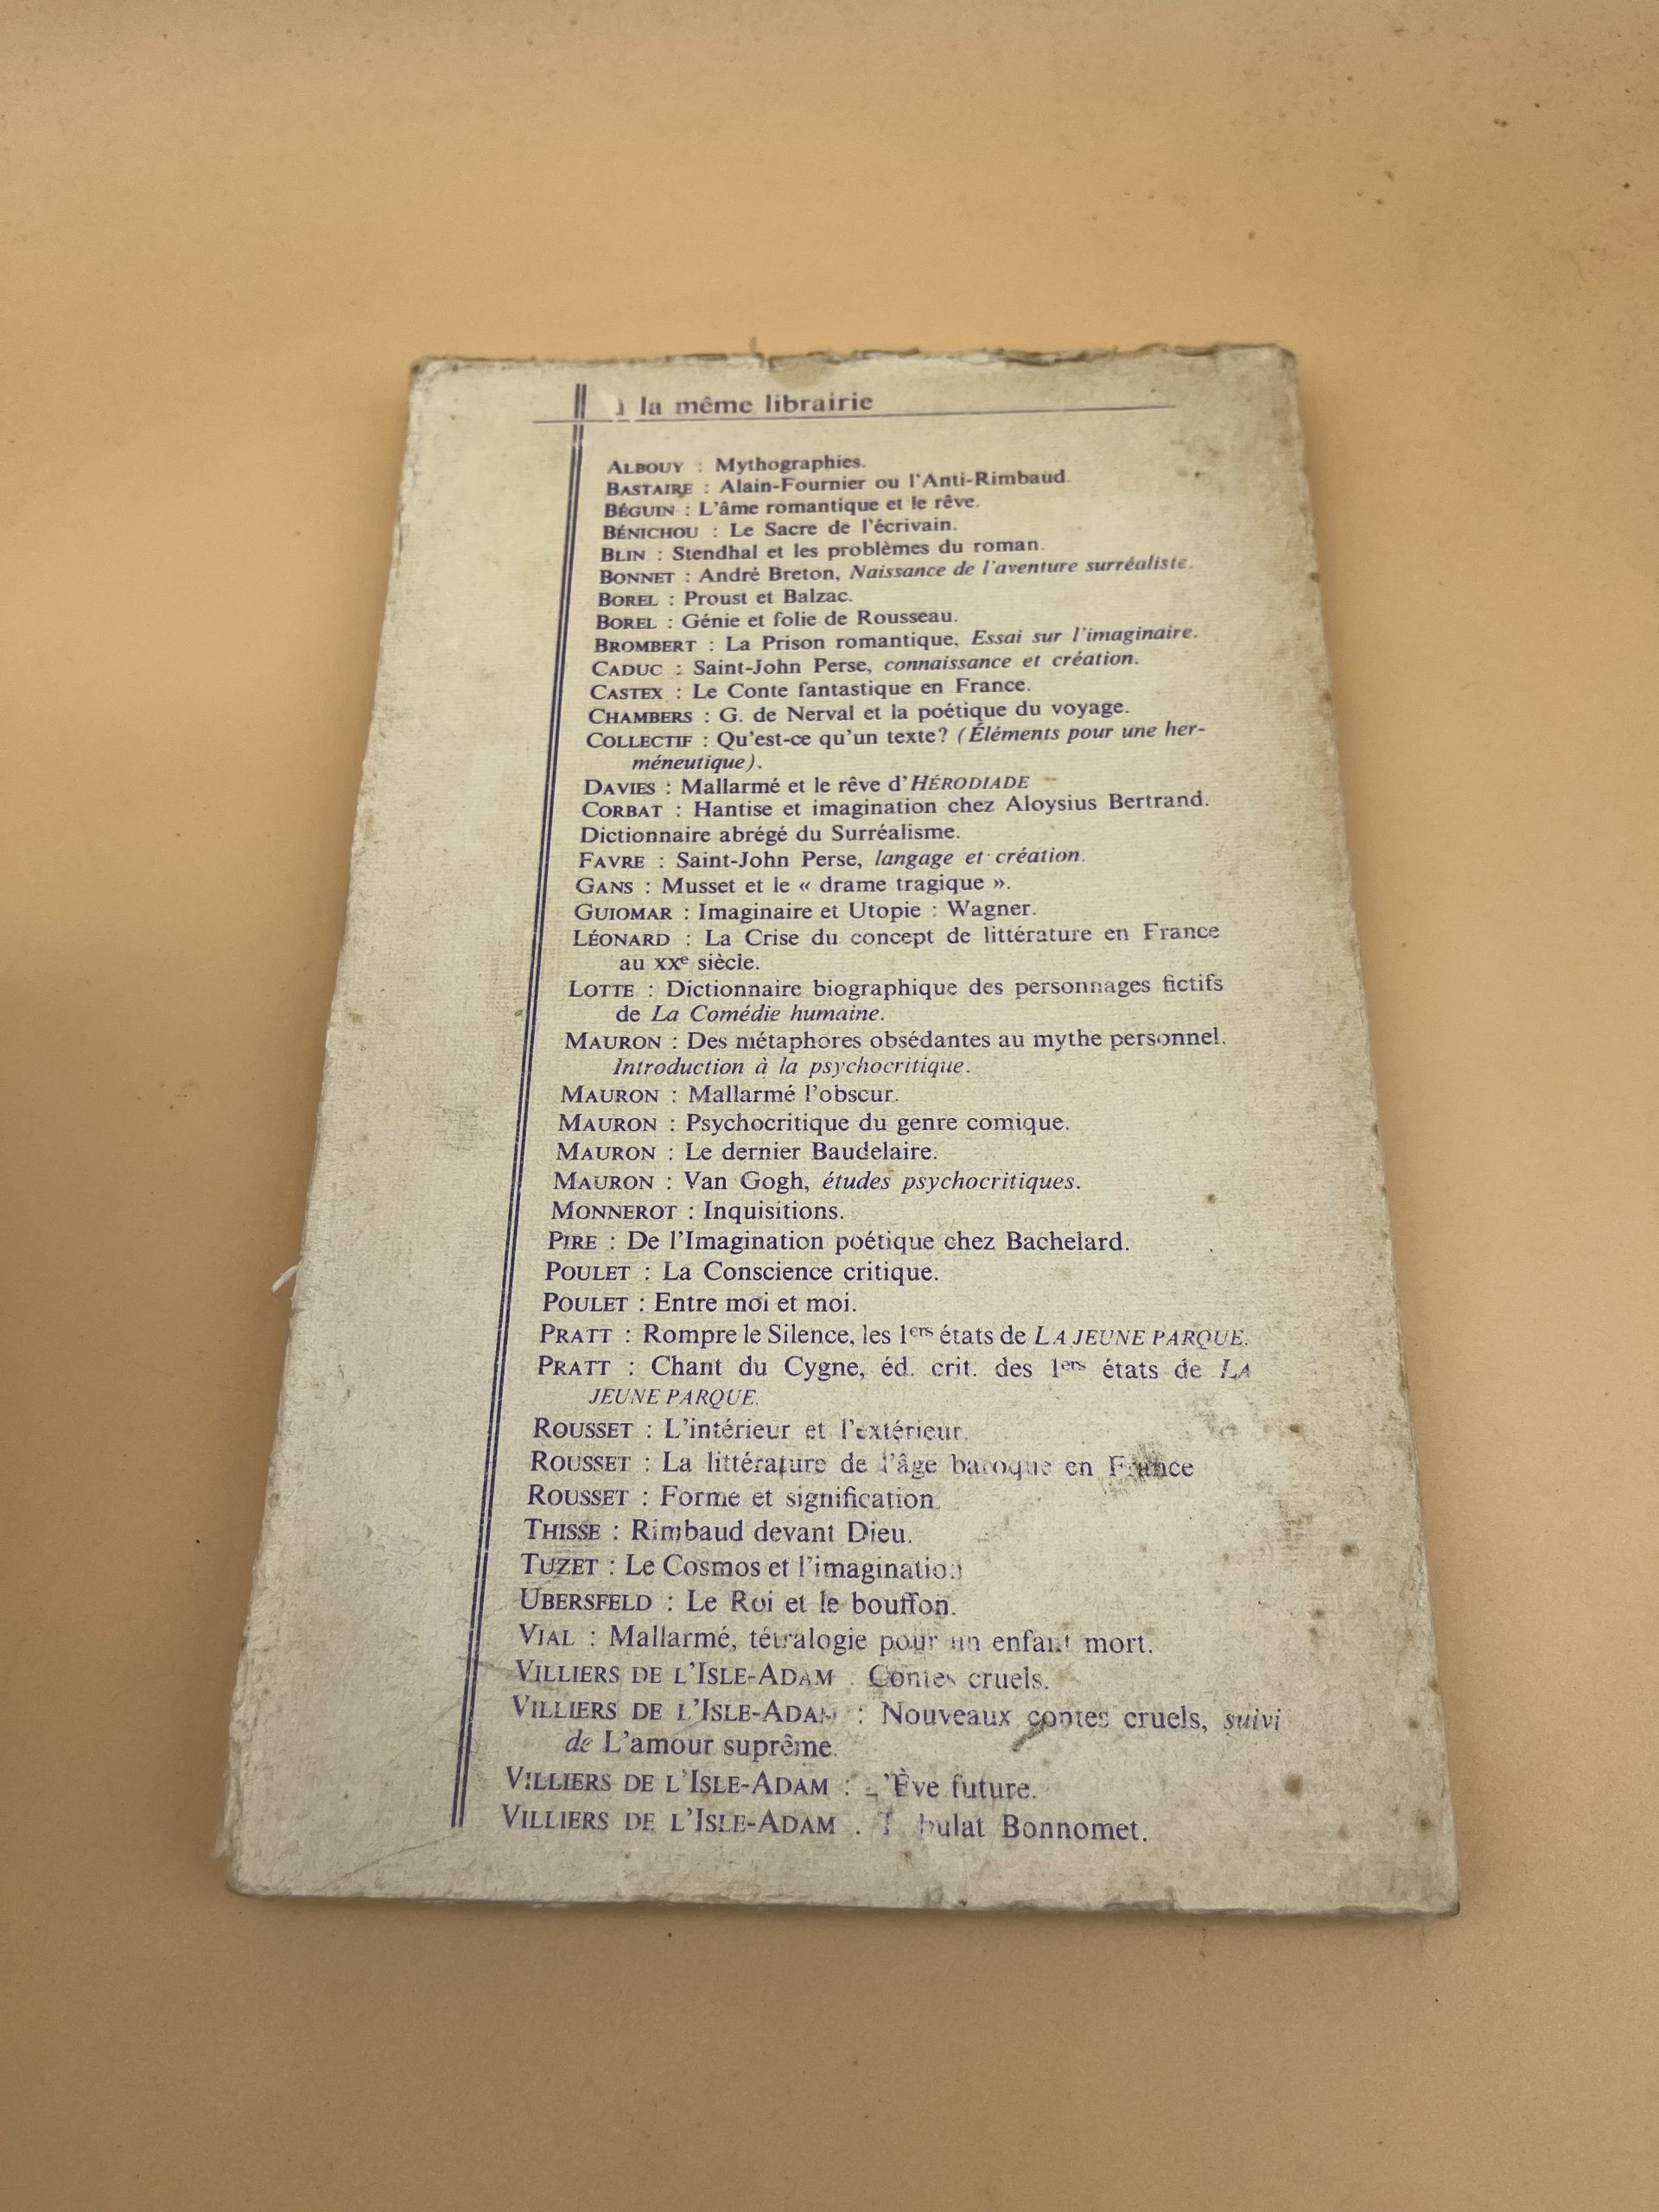 à la même librairie
ALBOUY : Mythographies.
BASTAIRE : Alain-Fournier ou l'Anti-Rimbaud.
BÉGUIN : L'âme romantique et le rêve.
BÉNICHOU : Le Sacre de l'écrivain.
BLIN : Stendhal et les problèmes du roman.
BONNET : André Breton, Naissance de l'aventure surréaliste.
BOREL : Proust et Balzac.
BOREL : Génie et folie de Rousseau.
BROMBERT : La Prison romantique, Essai sur l'imaginaire.
CADUC : Saint-John Perse, connaissance et création.
CASTEX : Le Conte fantastique en France.
CHAMBERS : G. de Nerval et la poétique du voyage.
COLLECTIF : Qu'est-ce qu'un texte? (Éléments pour une her-
méneutique).
DAVIES : Mallarmé et le rêve d'HÉRODIADE
CORBAT : Hantise et imagination chez Aloysius Bertrand.
Dictionnaire abrégé du Surréalisme.
FAVRE : Saint-John Perse, langage et création.
GANS : Musset et le « drame tragique ».
GUIOMAR : Imaginaire et Utopie : Wagner.
LÉONARD : La Crise du concept de littérature en France
au XXe siècle.
LOTTE : Dictionnaire biographique des personnages fictifs
de La Comédie humaine.
MAURON : Des métaphores obsédantes au mythe personnel.
Introduction à la psychocritique.
MAURON : Mallarmé l'obscur.
MAURON : Psychocritique du genre comique.
MAURON : Le dernier Baudelaire.
MAURON : Van Gogh, études psychocritiques.
MONNEROT : Inquisitions.
PIRE : De l'Imagination poétique chez Bachelard.
POULET : La Conscience critique.
POULET : Entre moi et moi.
PRATT : Rompre le Silence, les 1ers états de LA JEUNE PARQUE.
PRATT : Chant du Cygne, éd. crit. des 1ers états de LA
JEUNE PARQUE.
ROUSSET : L'intérieur et l'extérieur.
ROUSSET : La littérature de l'âge baroque en France
ROUSSET : Forme et signification.
THISSE : Rimbaud devant Dieu.
TUZET : Le Cosmos et l'imagination
UBERSFELD : Le Roi et le bouffon.
VIAL : Mallarmé, tétralogie pour un enfant mort.
VILLIERS DE L'ISLE-ADAM : Contes cruels.
VILLIERS DE L'ISLE-ADAM : Nouveaux contes cruels, suivi
de L'amour suprême.
VILLIERS DE L'ISLE-ADAM : L'Ève future.
VILLIERS DE L'ISLE-ADAM : Tribulat Bonnomet.